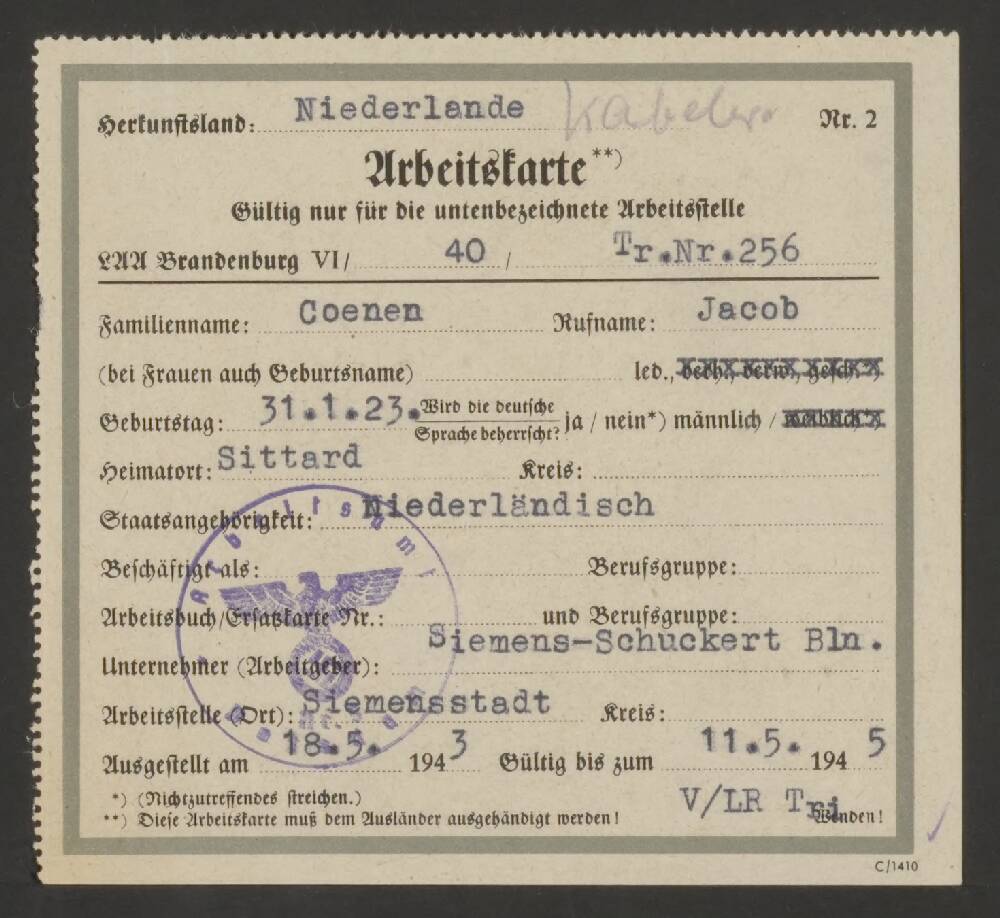 Herkunftsland: Niederlande Nr. 2
Arbeitskarte**)
Gültig nur für die untenbezeichnete Arbeitsstelle
LAA Brandenburg VI/ 40 / Tr.Nr.256
Familienname: Coenen Rufname: Jacob
(bei Frauen auch Geburtsname) led., verh., verw., gesch.*)
Geburtstag: 31.1.23. Wird die deutsche Sprache beherrscht? ja / nein*) männlich / weiblich*)
Heimatort: Sittard Kreis:
Staatsangehörigkeit: Niederländisch
Beschäftigt als: Berufsgruppe:
Arbeitsbuch/Ersatzkarte Nr.: und Berufsgruppe:
Unternehmer (Arbeitgeber): Siemens-Schuckert Bln.
Arbeitsstelle (Ort): Siemensstadt Kreis:
Ausgestellt am 18.5. 1943 Gültig bis zum 11.5. 1945
*) (Nichtzutreffendes streichen.)
**) Diese Arbeitskarte muß dem Ausländer ausgehändigt werden! V/LR Tri Wenden!
C/1410
Arbeitsamt